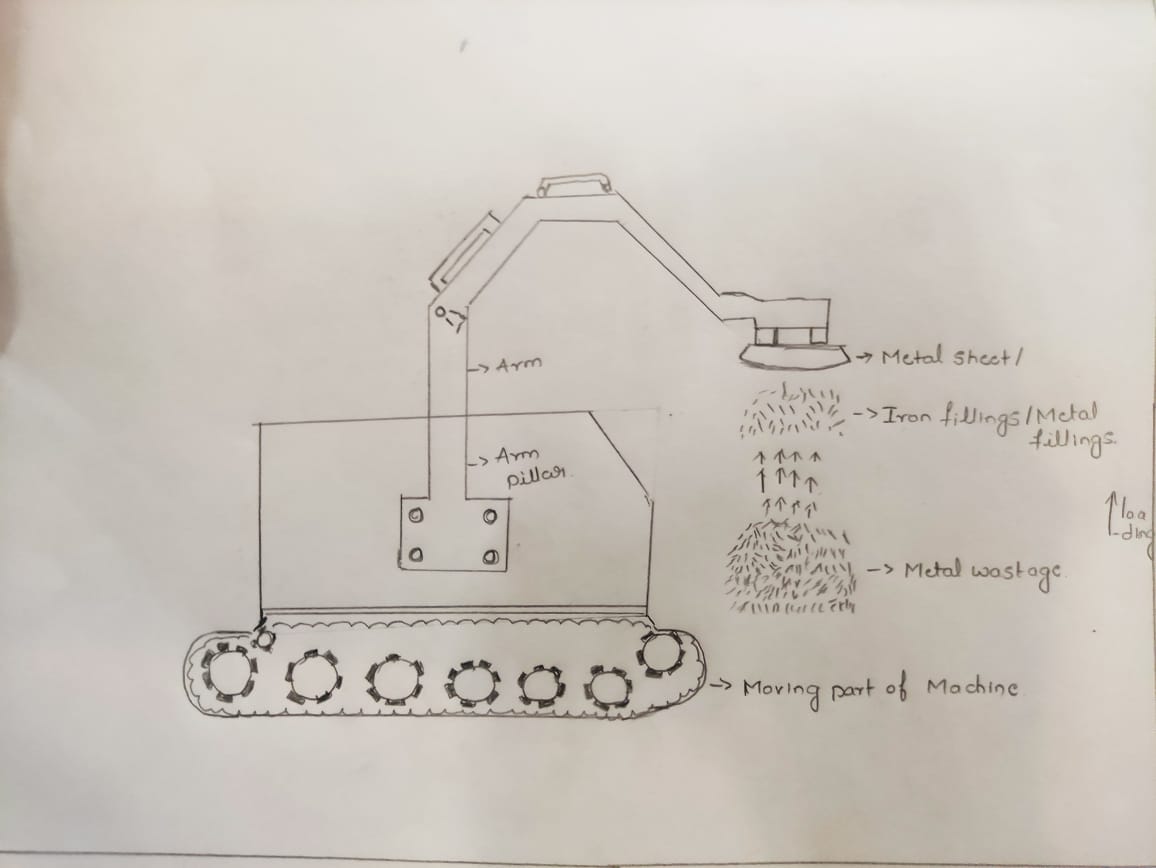 -> Arm
-> Metal sheet/
-> Iron fillings/Metal
fillings.
-> Arm
pillar.
↑ loa
-ding
-> Metal wastage.
-> Moving part of Machine